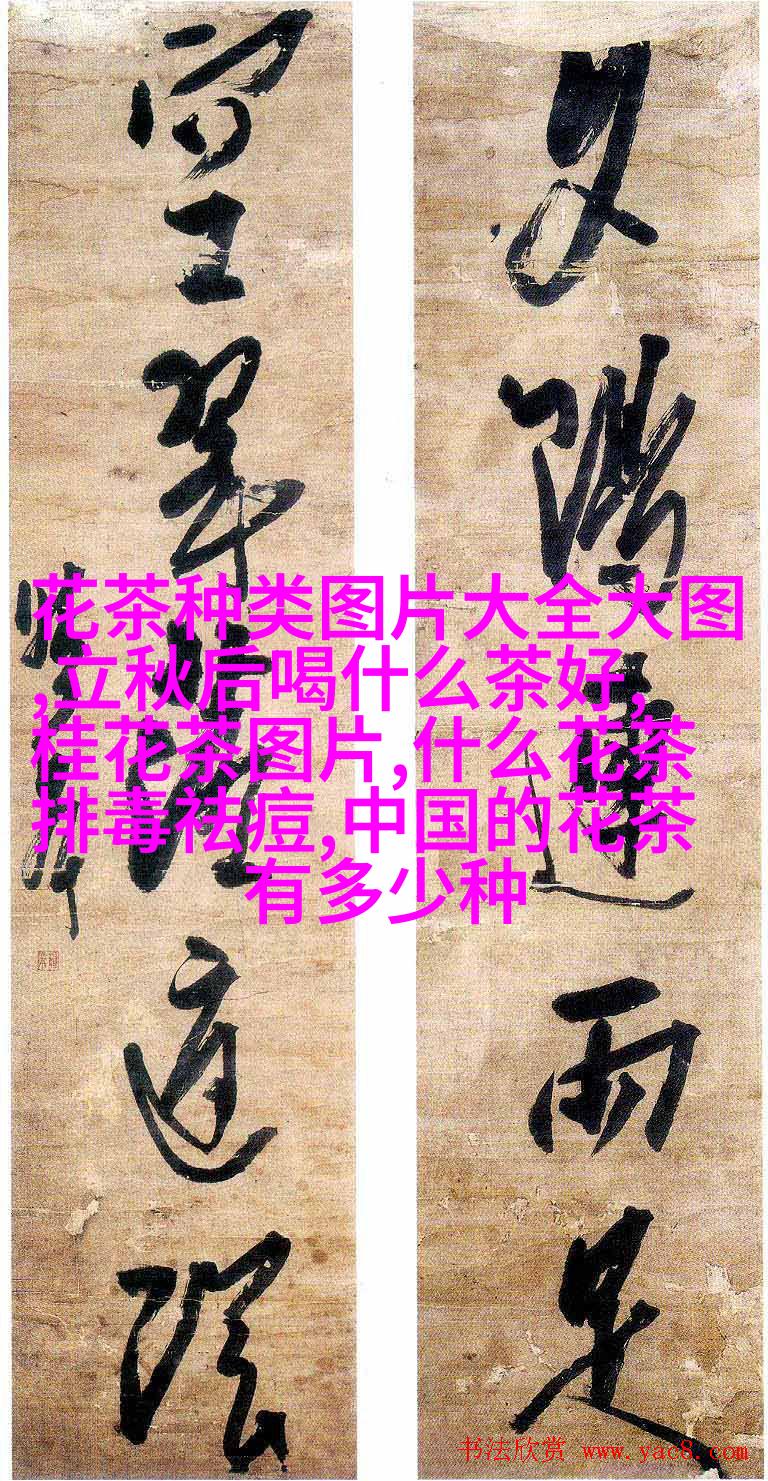 夕陽連雨足
空翠落庭陰
花茶种类图片大全大图
,立秋后喝什么茶好,
桂花茶图片,什么花茶
排毒祛痘,中国的花茶
有多少种
书法欣赏 www.yac8.com